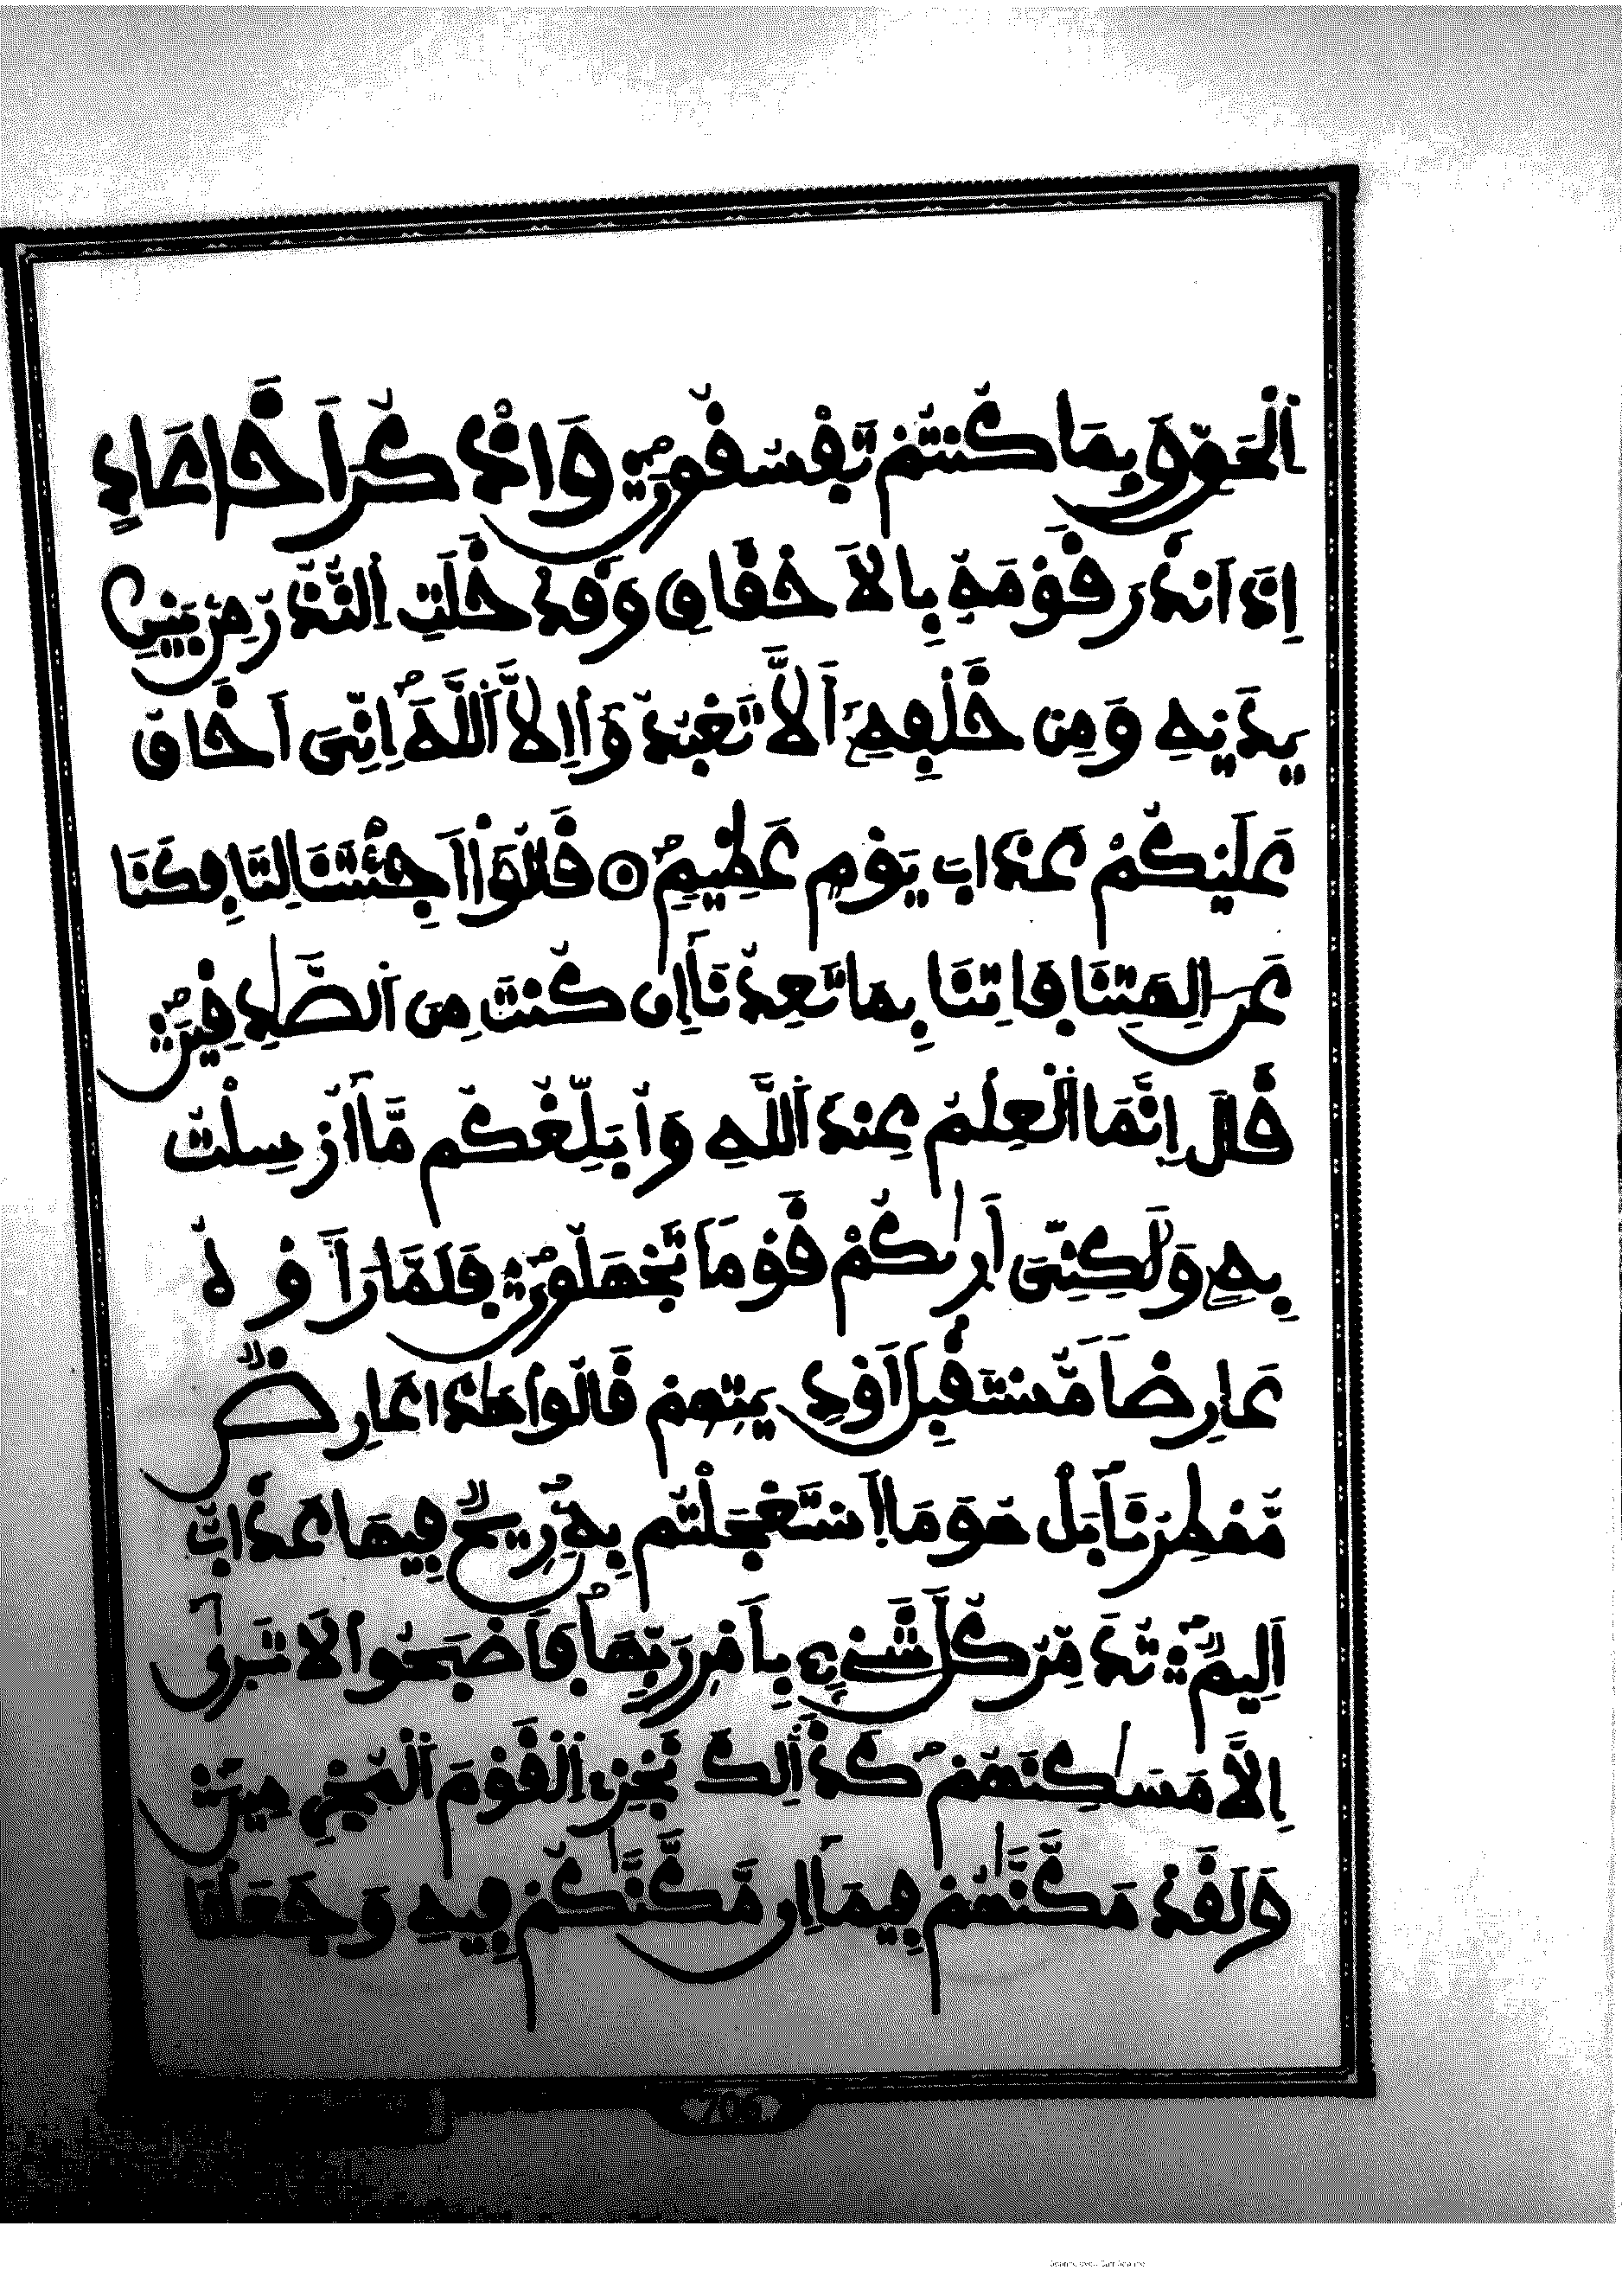 اَ۬لْحَقِّ وَبِمَا كُنتُمْ تَفْسُقُونَ ۞ وَاذْكُرَ اَخَا عَادٍ
اِذَ اَنذَرَ قَوْمَهُ بِالَاحْقَافِ وَقَدْ خَلَتِ اِ۬لنُّذُرُ مِنۢ بَيْنِ
يَدَيْهِ وَمِنْ خَلْفِهِۦٓ أَلَّا تَعْبُدُوٓاْ إِلَّا اَ۬للَّهَ إِنِّىَ أَخَافُ
عَلَيْكُمْ عَذَابَ يَوْمٍ عَظِيمٍ ۞ قَالُوٓاْ أَجِئْتَنَا لِتَافِكَنَا
عَنَ اٰلِهَتِنَا فَاتِنَا بِمَا تَعِدُنَآ إِن كُنتَ مِنَ اَ۬لصَّٰدِقِينَ
قَالَ إِنَّمَا اَ۬لْعِلْمُ عِندَ اَ۬للَّهِ وَأُبَلِّغُكُم مَّآ أُرْسِلْتُ
بِهِۦ وَلَٰكِنِّىَ أَر۪ىٰكُمْ قَوْماً تَجْهَلُونَ فَلَمَّا رَأَوْهُ
عَارِضاً مُّسْتَقْبِلَ أَوْدِيَتِهِمْ قَالُواْ هَٰذَا عَارِضٌ
مُّمْطِرُنَا بَلْ هُوَ مَا اَ۪سْتَعْجَلْتُم بِهِۦ رِيحٌ فِيهَا عَذَابٌ
اَلِيمٌ تُدَمِّرُ كُلَّ شَىْءِۢ بِأَمْرِ رَبِّهَا فَأَصْبَحُواْ لَا تَر۪ىٰٓ
إِلَّا مَسَٰكِنَهُمْ كَذَٰلِكَ نَجْزِى اِ۬لْقَوْمَ اَ۬لْمُجْرِمِينَ
وَلَقَدْ مَكَّنَّٰهُمْ فِيمَآ إِن مَّكَّنَّٰكُمْ فِيهِ وَجَعَلْنَا
706